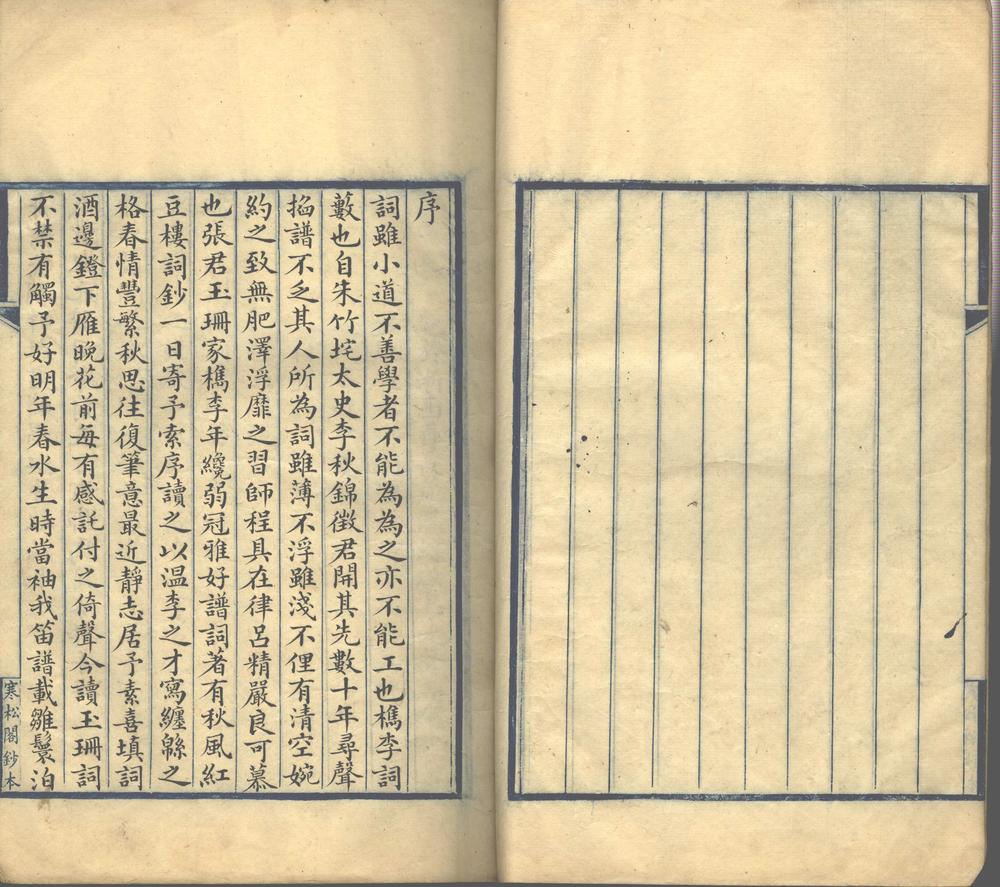 序
詞雖小道不善學者不能為為之亦不能工也檇李詞
藪也自朱竹垞太史李秋錦徵君開其先數十年尋聲
掐譜不乏其人所為詞雖薄不浮雖淺不俚有清空婉
約之致無肥澤浮靡之習師程具在律呂精嚴良可慕
也張君玉珊家檇李年纔弱冠雅好譜詞著有秋風紅
豆樓詞鈔一日寄予索序讀之以温李之才寫纏緜之
格春情豐繁秋思往復筆意最近靜志居予素喜填詞
酒邊鐙下雁晚花前每有感託付之倚聲今讀玉珊詞
不禁有觸予好明年春水生時當袖我笛譜載雛鬟泊
寒松閣鈔本